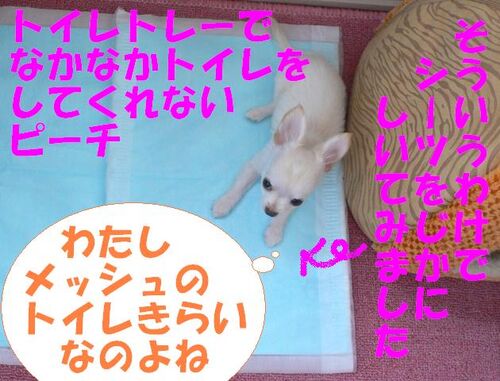 トイレトレーで
なかなかトイレを
してくれない
ピーチ
そういうわけで
シーツをじかに
しいてみました
わたし
メッシュの
トイレきらい
なのよね